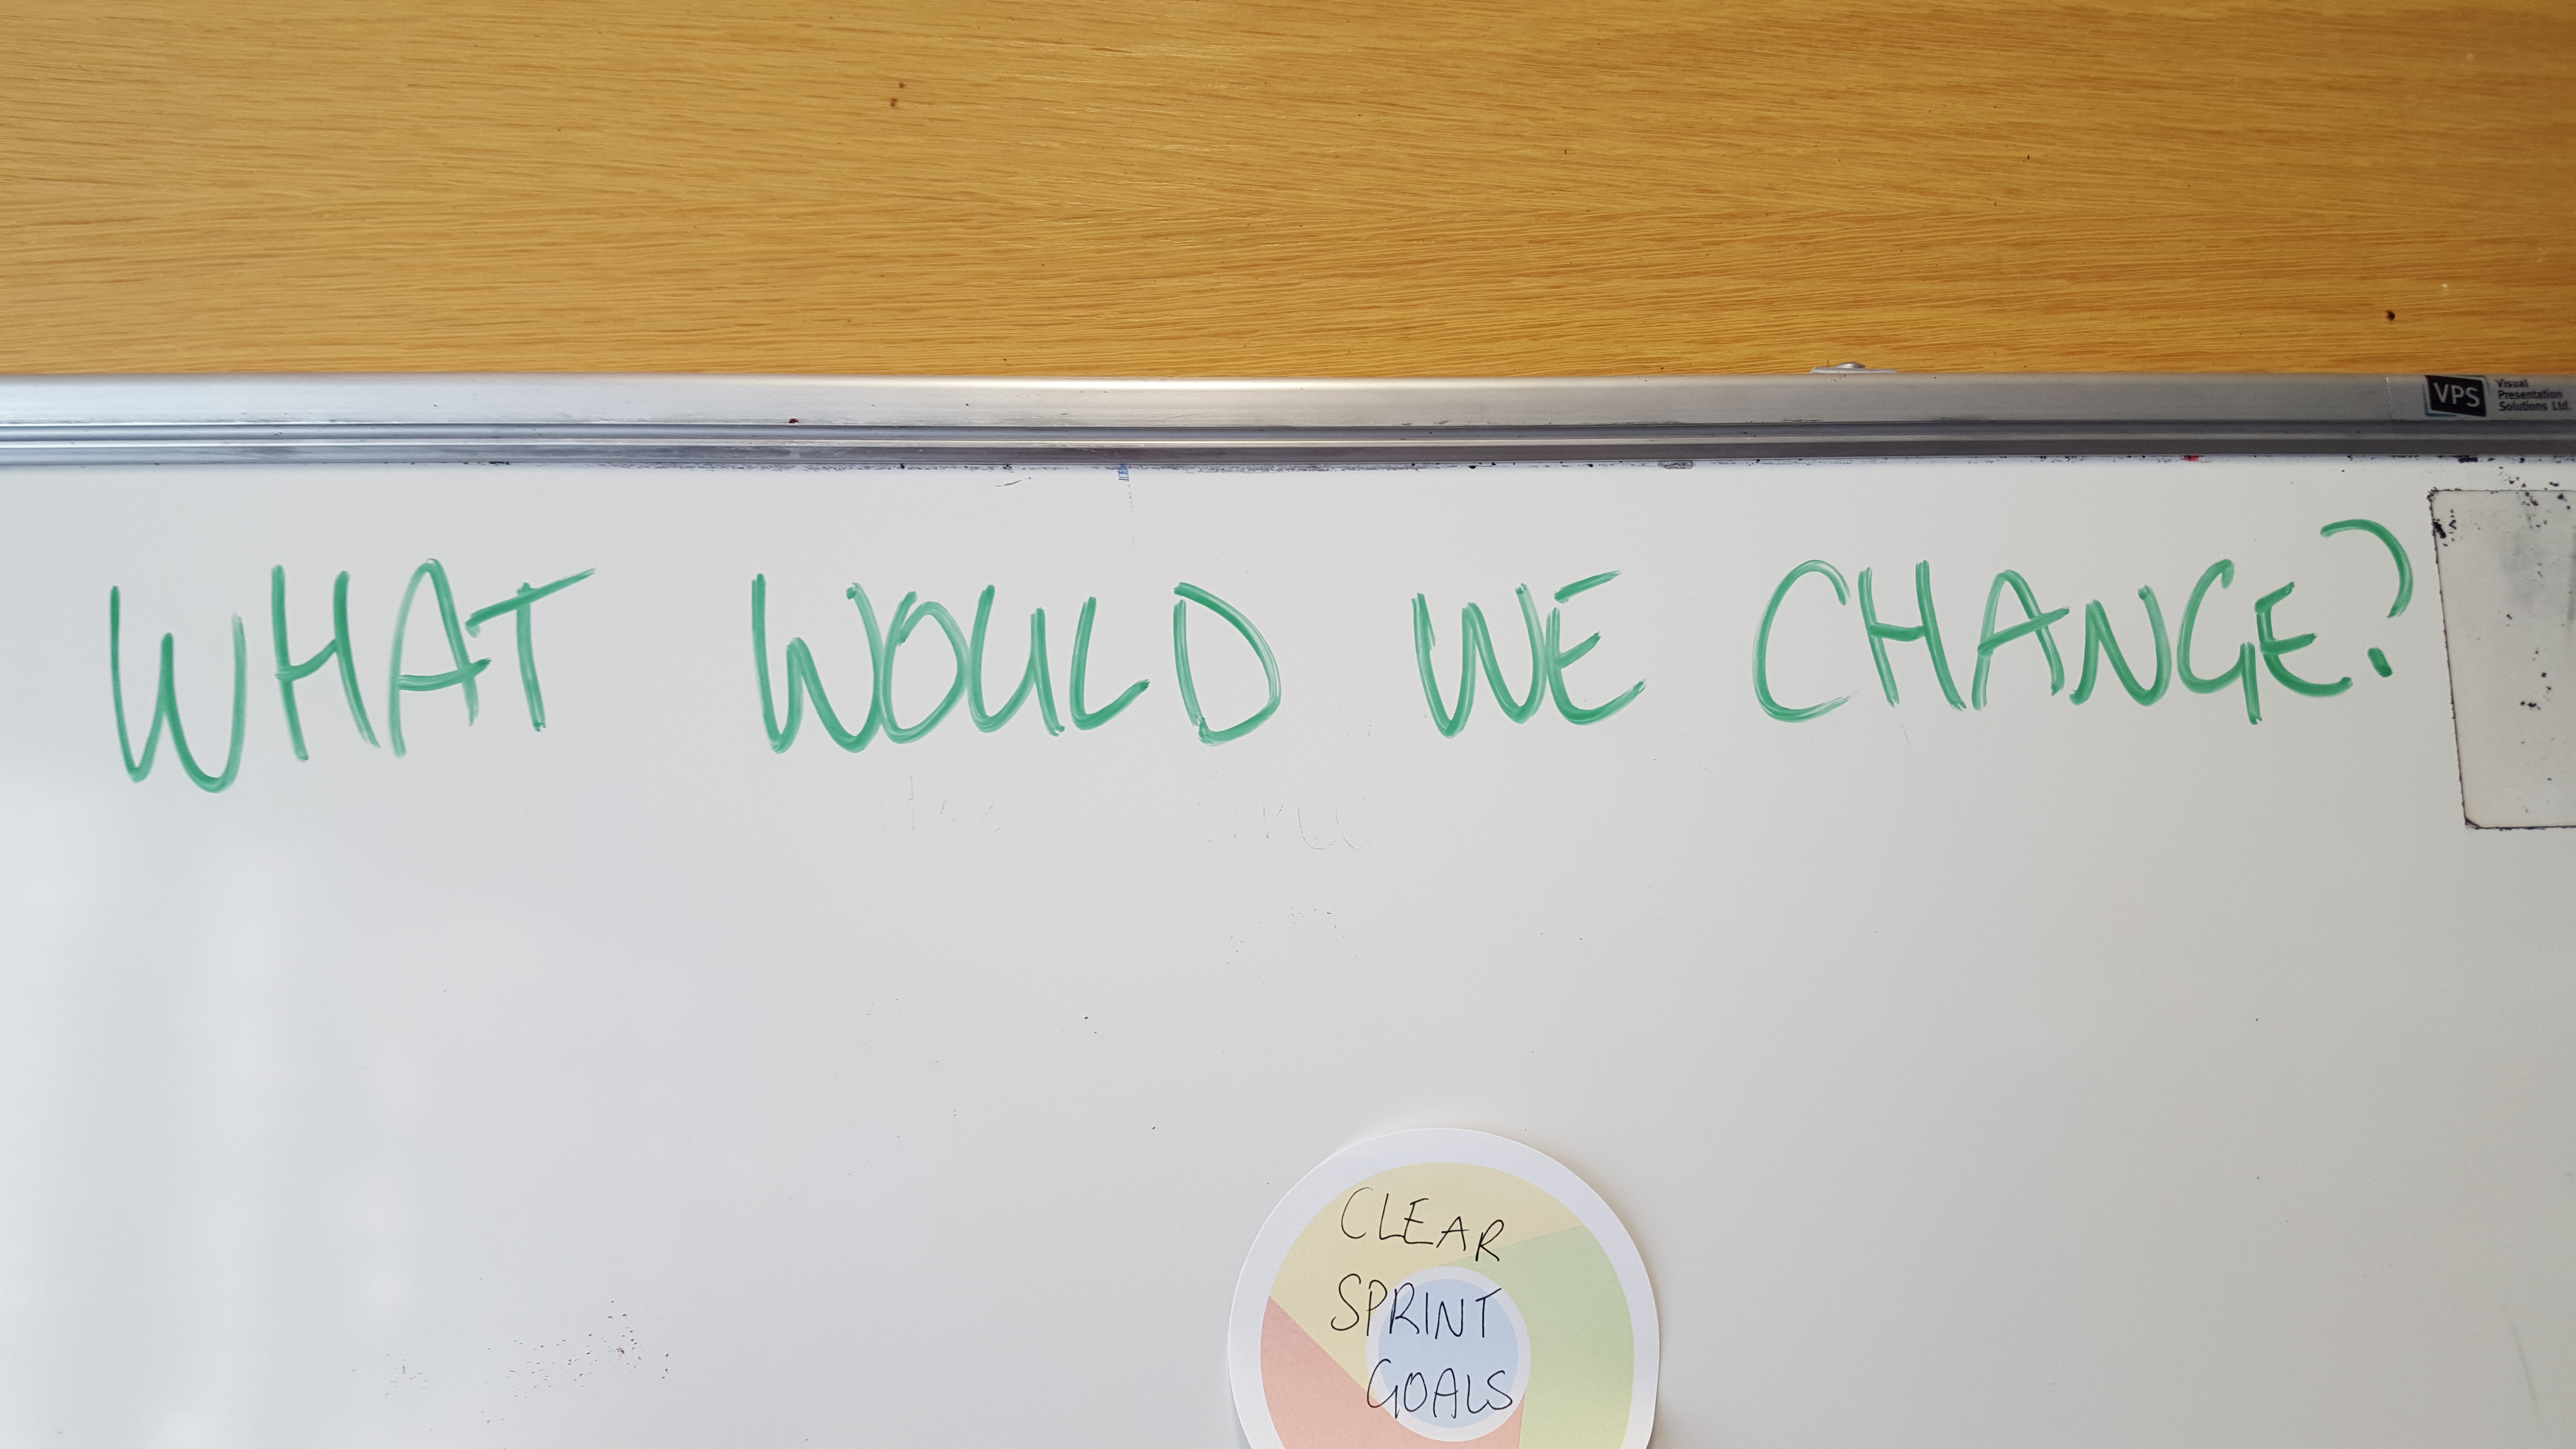 VPS
Visual
Presentation
Solutions Ltd.
WHAT WOULD WE CHANGE?
CLEAR
SPRINT
GOALS